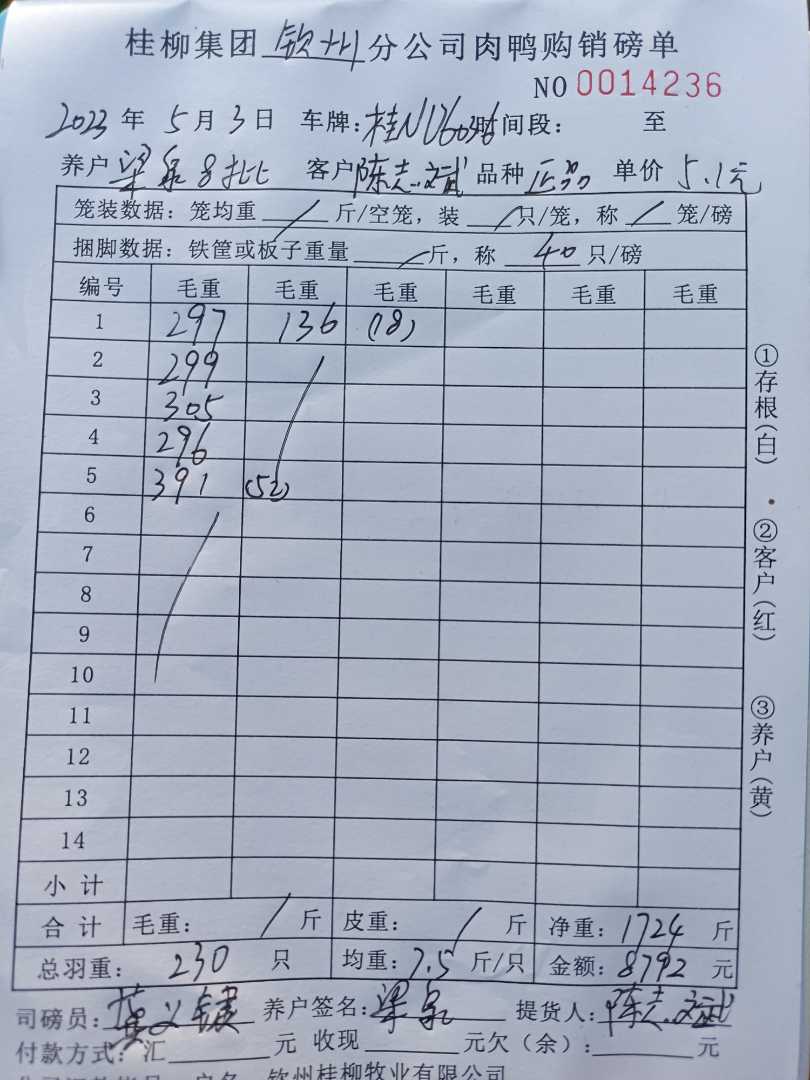 桂柳集团钦州分公司肉鸭购销磅单
NO 0014236
2023年5月3日 车牌:桂NU6036时间段: 至
养户梁泉8批 客户陈志斌 品种正品 单价5.1元
笼装数据:笼均重/斤/空笼,装/只/笼,称/笼/磅
捆脚数据:铁筐或板子重量/斤,称40只/磅
编号 毛重 毛重 毛重 毛重 毛重 毛重
1 297 136 (18)
2 299
3 305
4 296
5 391 (52)
6
7
8
9
10
11
12
13
14
小计
合计 毛重:/斤 皮重:/斤 净重:1724斤
总羽重:230只 均重:7.5斤/只 金额:8792元
司磅员: 养户签名:梁泉 提货人:陈志斌
付款方式:汇 元 收现 元欠(余): 元
户名 钦州桂柳牧业有限公司
①存根(白)
②客户(红)
③养户(黄)